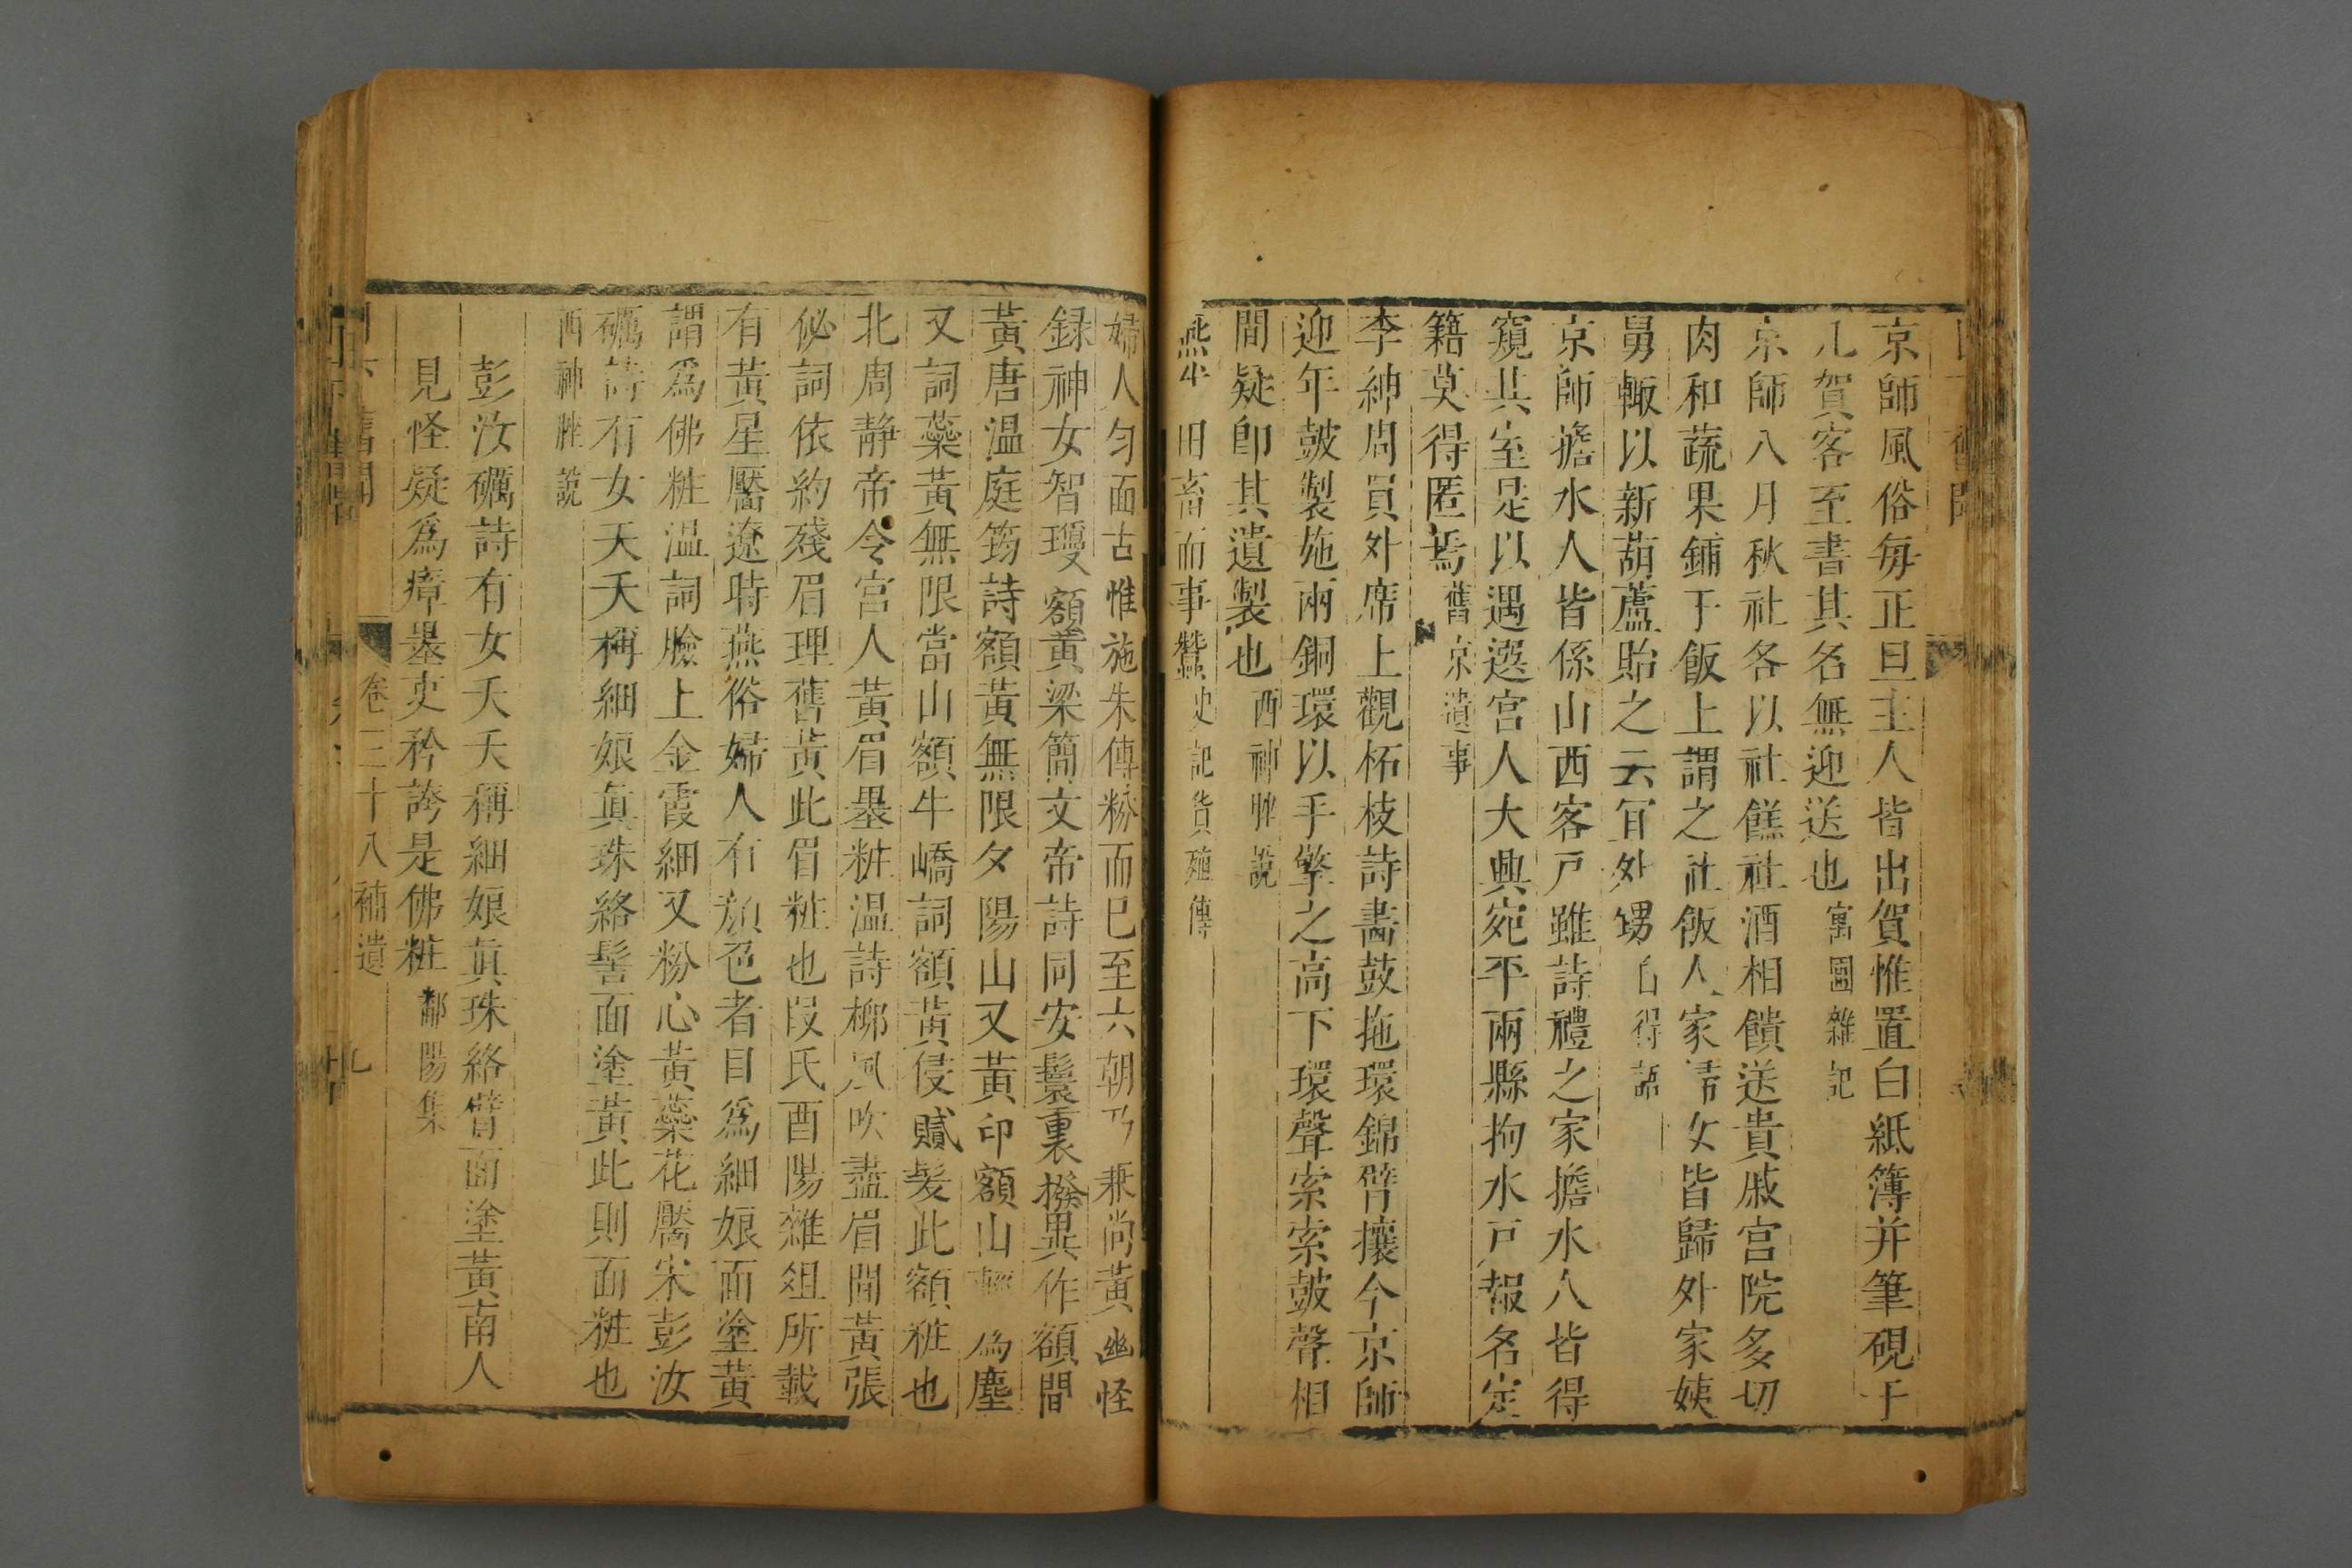 京師風俗每正旦主人皆出賀惟置白紙簿并筆硯于
几賀客至書其名無迎送也寓圃雜記
京師八月秋社各以社餻社酒相饋送貴戚宮院多切
肉和蔬果鋪于飯上謂之社飯人家婦女皆歸外家姨
舅輙以新葫蘆貽之云宜外甥白得語
京師擔水人皆係山西客戶雖詩禮之家擔水人皆得
窺其室是以遇選宮人大興宛平兩縣拘水戶報名定
籍莫得匿焉舊京遺事
李紳周員外席上觀柘枝詩畵鼓拖環錦臂攘今京師
迎年皷製施兩銅環以手擎之高下環聲索索皷聲相
間疑卽其遺製也西神脞說
燕 田畜而事蠶史記貨殖傳
婦人匀面古惟施朱傅粉而已至六朝乃兼尚黃幽怪
録神女智瓊額黃梁簡文帝詩同安鬟裏撥異作額間
黃唐温庭筠詩額黃無限夕陽山又黃印額山輕為塵
又詞蘂黃無限當山額牛嶠詞額黃侵膩髪此額粧也
北周靜帝令宮人黃眉墨粧温詩柳風吹盡眉間黃張
泌詞依約殘眉理舊黃此眉粧也叚氏酉陽雜俎所載
有黃星靨遼時燕俗婦人有顏色者目爲細娘面塗黃
謂爲佛粧温詞臉上金霞細又粉心黃蘂花靨宋彭汝
礪詩有女夭夭稱細娘眞珠絡髻面塗黃此則面粧也
西神脞說
彭汝礪詩有女夭夭稱細娘眞珠絡臂面塗黃南人
見怪疑爲瘴墨吏矜誇是佛粧鄱陽集
日下舊聞 卷三十八補遺 九